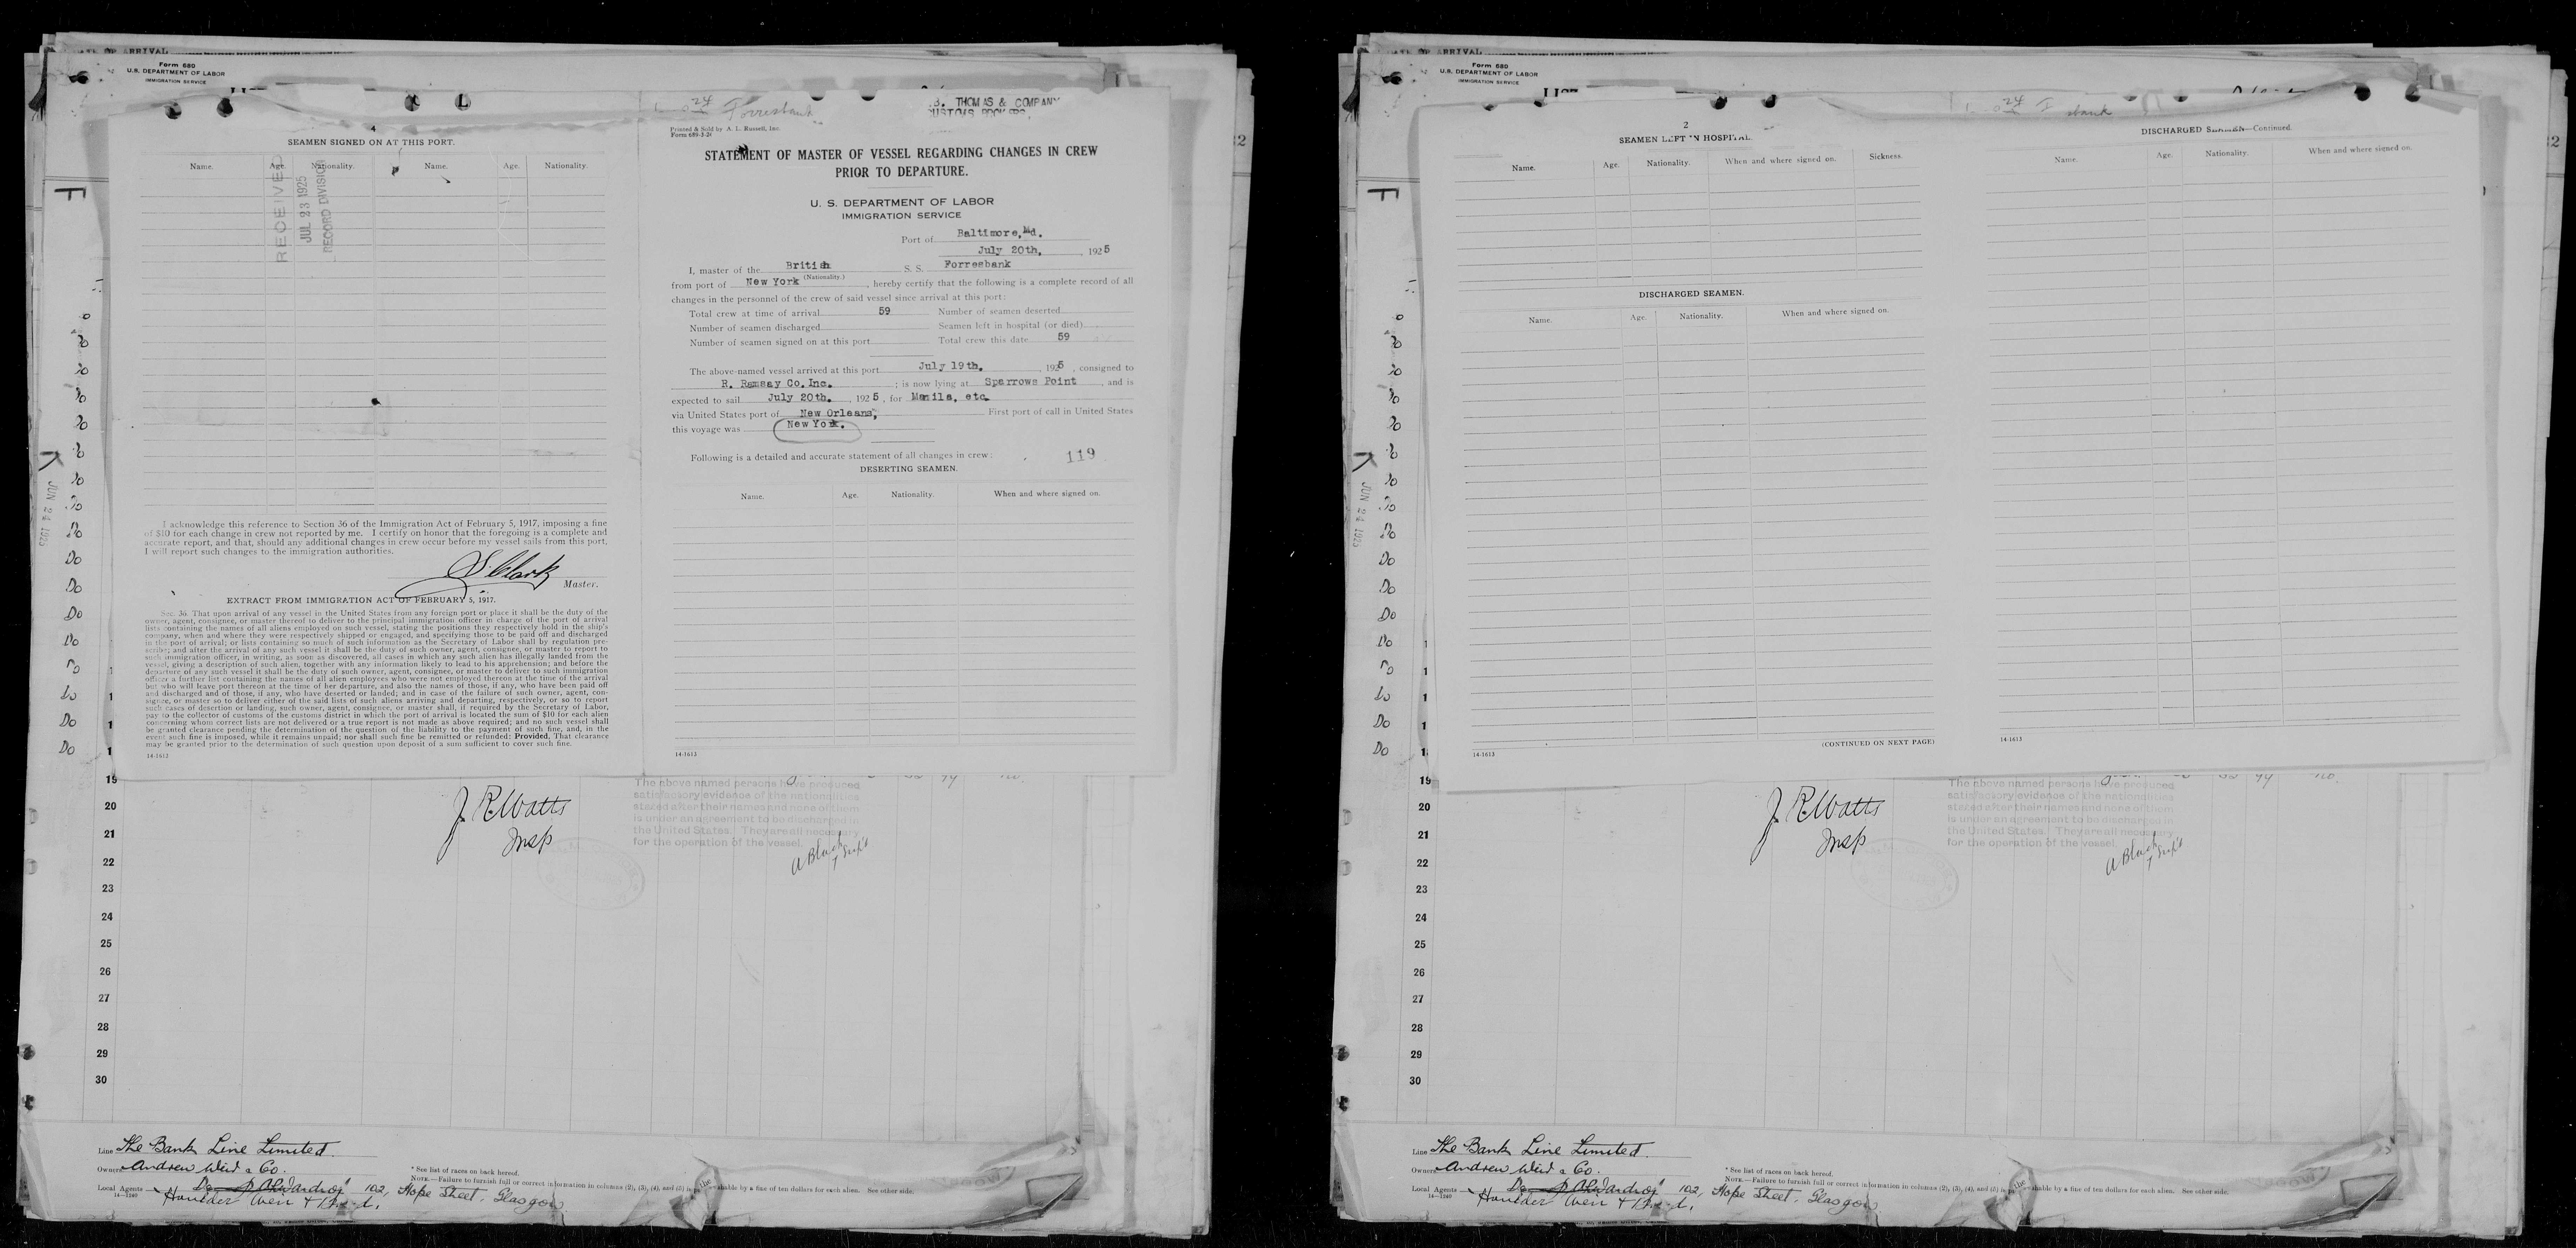 Form 680
U.S. DEPARTMENT OF LABOR
IMMIGRATION SERVICE
4
SEAMEN SIGNED ON AT THIS PORT.
Name. Age. Nationality. Name. Age. Nationality.
RECEIVED
JUL 23 1925
RECORD DIVISION
I acknowledge this reference to Section 36 of the Immigration Act of February 5, 1917, imposing a fine
of $10 for each change in crew not reported by me. I certify on honor that the foregoing is a complete and
accurate report, and that, should any additional changes in crew occur before my vessel sails from this port,
I will report such changes to the immigration authorities.
S. Clark
Master.
EXTRACT FROM IMMIGRATION ACT OF FEBRUARY 5, 1917.
Sec. 36. That upon arrival of any vessel in the United States from any foreign port or place it shall be the duty of the
owner, agent, consignee, or master thereof to deliver to the principal immigration officer in charge of the port of arrival
lists containing the names of all aliens employed on such vessel, stating the positions they respectively hold in the ship's
company, when and where they were respectively shipped or engaged, and specifying those to be paid off and discharged
in the port of arrival; or lists containing so much of such information as the Secretary of Labor shall by regulation pre-
scribe; and after the arrival of any such vessel it shall be the duty of such owner, agent, consignee, or master to report to
such immigration officer, in writing, as soon as discovered, all cases in which any such alien has illegally landed from the
vessel, giving a description of such alien, together with any information likely to lead to his apprehension; and before the
departure of any such vessel it shall be the duty of such owner, agent, consignee, or master to deliver to such immigration
officer a further list containing the names of all alien employees who were not employed thereon at the time of the arrival
but who will leave port thereon at the time of her departure, and also the names of those, if any, who have been paid off
and discharged and of those, if any, who have deserted or landed; and in case of the failure of such owner, agent, con-
signee, or master so to deliver either of the said lists of such aliens arriving and departing, respectively, or so to report
such cases of desertion or landing, such owner, agent, consignee, or master shall, if required by the Secretary of Labor,
pay to the collector of customs of the customs district in which the port of arrival is located the sum of $10 for each alien
concerning whom correct lists are not delivered or a true report is not made as above required; and no such vessel shall
be granted clearance pending the determination of the question of the liability to the payment of such fine, and, in the
event such fine is imposed, while it remains unpaid; nor shall such fine be remitted or refunded: Provided, That clearance
may be granted prior to the determination of such question upon deposit of a sum sufficient to cover such fine.
14-1613
24 Forresbank
THOMAS & COMPANY
CUSTOMS BROKERS.
Printed & Sold by A. L. Russell, Inc.
Form 689-3-24
STATEMENT OF MASTER OF VESSEL REGARDING CHANGES IN CREW
PRIOR TO DEPARTURE.
U. S. DEPARTMENT OF LABOR
IMMIGRATION SERVICE
Port of Baltimore, Md.
July 20th, 1925
I, master of the British S. S. Forresbank
(Nationality.)
from port of New York, hereby certify that the following is a complete record of all
changes in the personnel of the crew of said vessel since arrival at this port:
Total crew at time of arrival 59 Number of seamen deserted
Number of seamen discharged Seamen left in hospital (or died)
Number of seamen signed on at this port Total crew this date 59
The above-named vessel arrived at this port July 19th, 1925, consigned to
R. Ramsay Co. Inc.; is now lying at Sparrows Point, and is
expected to sail July 20th, 1925, for Manila, etc.
via United States port of New Orleans, First port of call in United States
this voyage was New York.
Following is a detailed and accurate statement of all changes in crew: 119
DESERTING SEAMEN.
Name. Age. Nationality. When and where signed on.
14-1613
JUN 24 1925
Do
Do
Do
Do
Do
Do
19
20
21
22
23
24
25
26
27
28
29
30
J. R. Watts
Insp
The above named persons have produced
satisfactory evidence of the nationalities
stated after their names and none of them
is under an agreement to be discharged in
the United States. They are all necessary
for the operation of the vessel.
Line The Bank Line Limited.
Owners Andrew Weir & Co.
Local Agents 102, Hope Street, Glasgow
Houlder Weir &
14-1240
* See list of races on back hereof.
NOTE.—Failure to furnish full or correct information in columns (2), (3), (4), and (5) is punishable by a fine of ten dollars for each alien. See other side.
Form 680
U.S. DEPARTMENT OF LABOR
IMMIGRATION SERVICE
24
2
SEAMEN LEFT IN HOSPITAL
Name. Age. Nationality. When and where signed on. Sickness.
DISCHARGED SEAMEN.
Name. Age. Nationality. When and where signed on.
14-1613
(CONTINUED ON NEXT PAGE)
DISCHARGED SEAMEN—Continued.
Name. Age. Nationality. When and where signed on.
14-1613
JUN 24 1925
Do
Do
Do
Do
Do
Do
19
20
21
22
23
24
25
26
27
28
29
30
J. R. Watts
Insp
The above named persons have produced
satisfactory evidence of the nationalities
stated after their names and none of them
is under an agreement to be discharged in
the United States. They are all necessary
for the operation of the vessel.
Line The Bank Line Limited.
Owners Andrew Weir & Co.
Local Agents 102, Hope Street, Glasgow
Houlder Weir &
14-1240
* See list of races on back hereof.
NOTE.—Failure to furnish full or correct information in columns (2), (3), (4), and (5) is punishable by a fine of ten dollars for each alien. See other side.